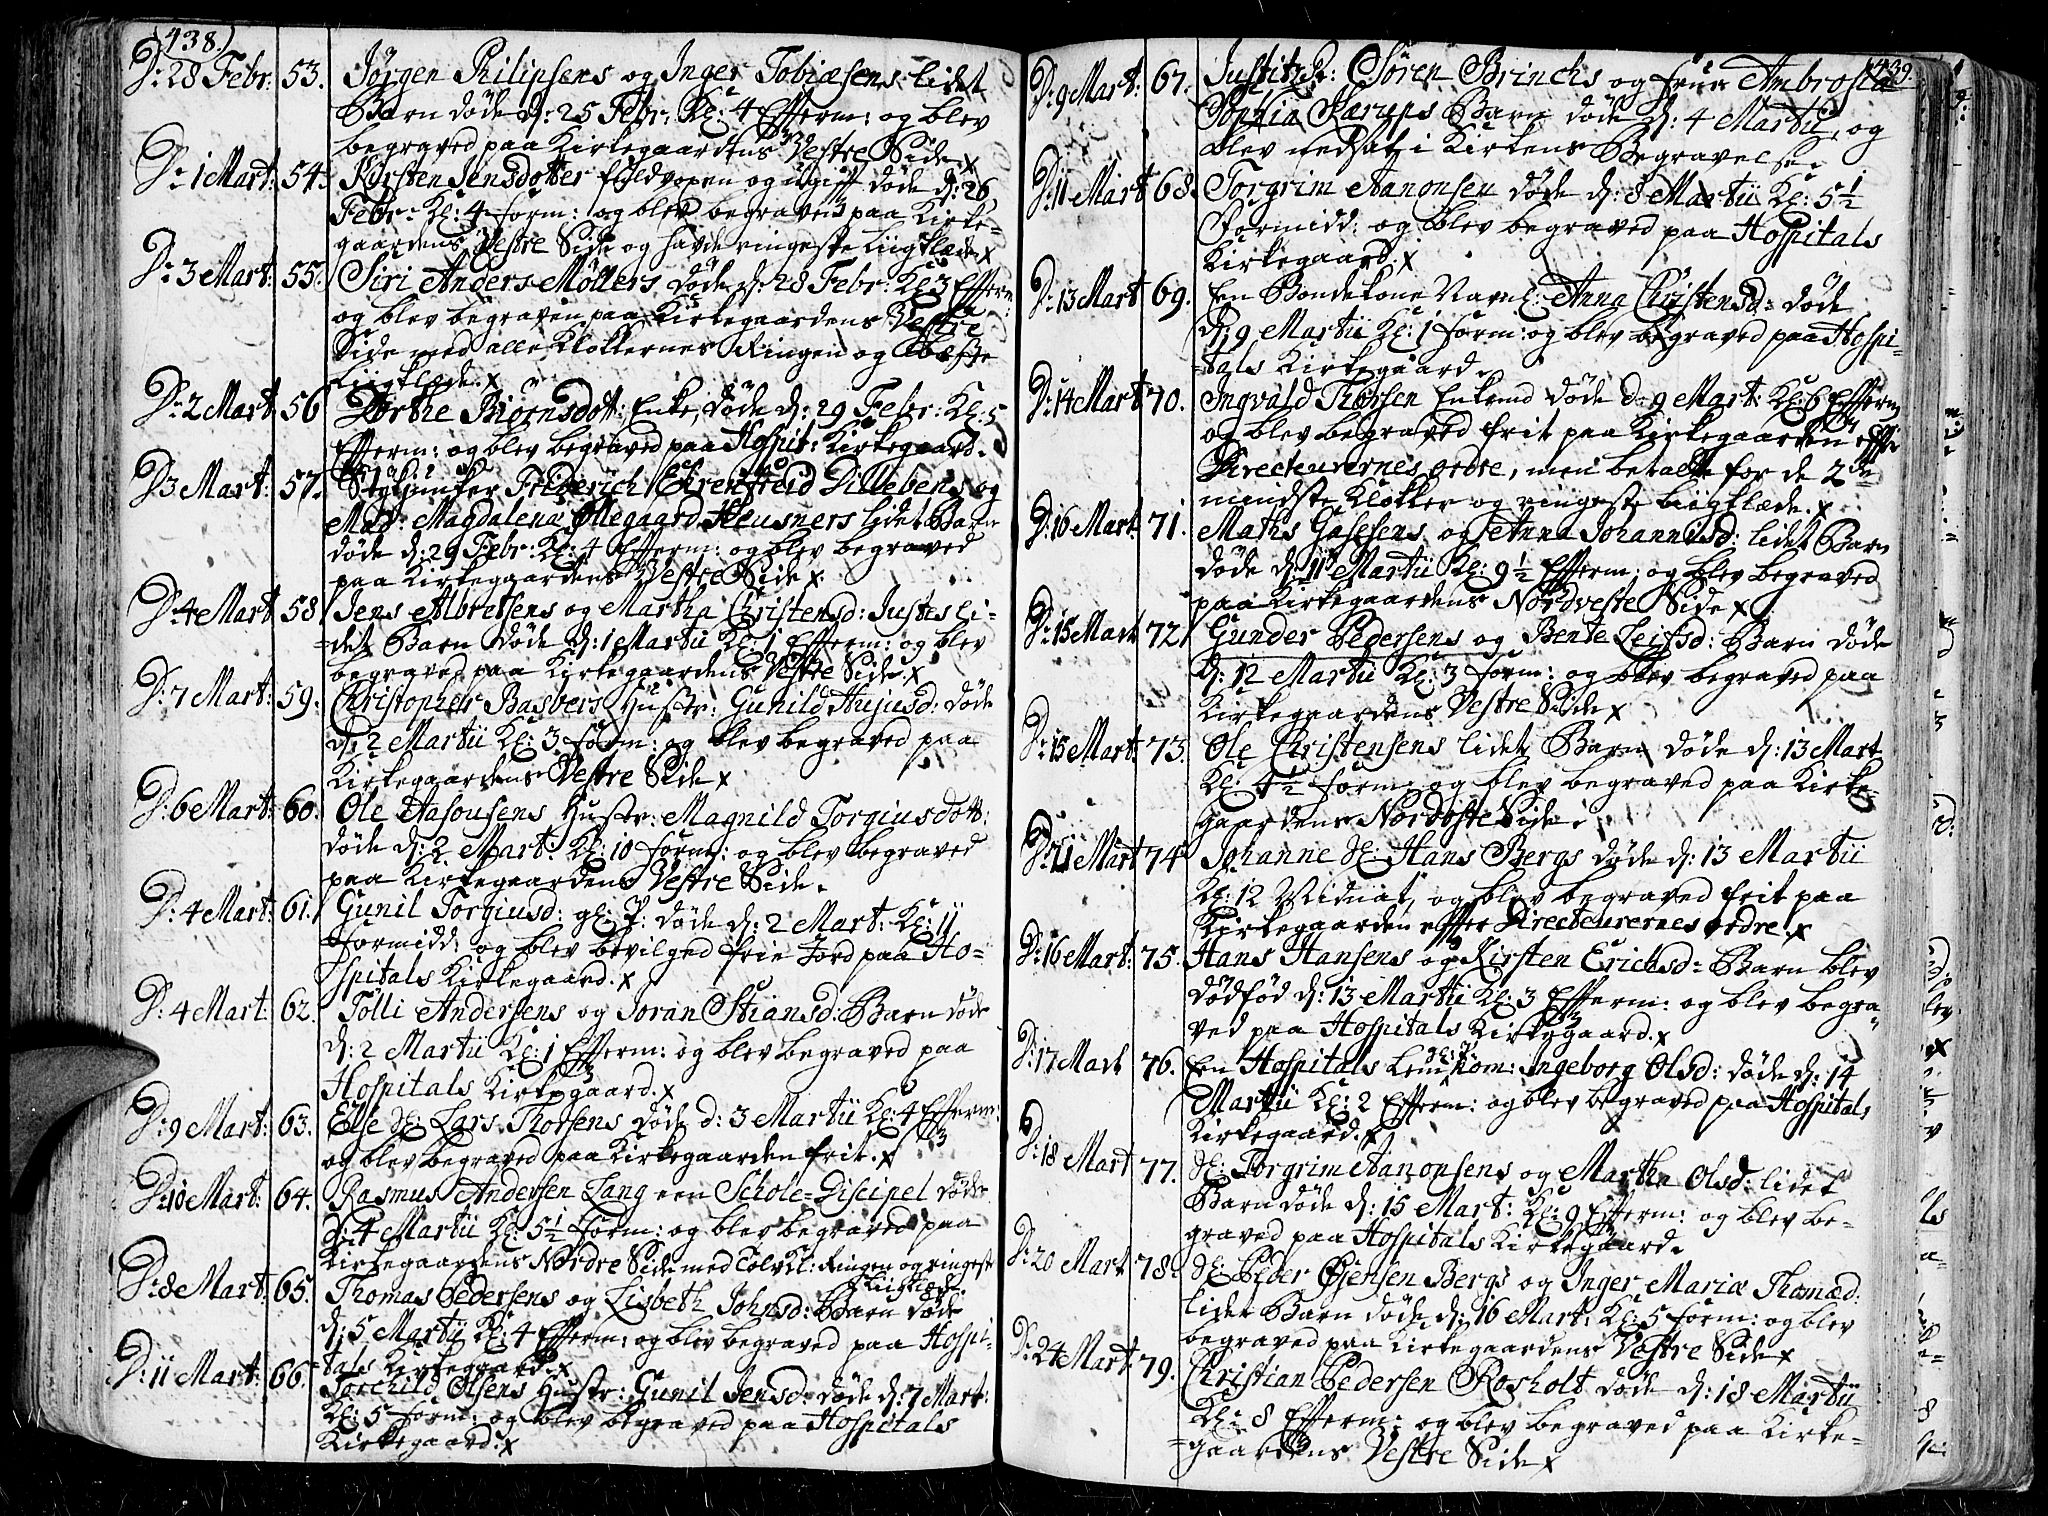 438.)
D: 28 Febr: 53. Jørgen Philipsens og Inger Tobiæsens lidet
Barn døde d: 25 Febr: Kl: 4 Efferm: og blev
begraved paa Kirkegaardens Vestre Side x
D: 1 Mart: 54. Kirsten Jensdotter fuldvoxen og ugift døde d: 26
Febr: Kl: 4 form: og blev begraved paa Kirke-
gaardens Vestre Side og havde ringeste Liigklæde x
D: 3 Mart: 55. Siri Anders Møllers døde d: 28 Febr: Kl: 3 Efferm:
og blev begraven paa Kirkegaardens Vestre
Side med alle Klokkernes Ringen og beste
Liigklæde. x
D: 2 Mart 56 Dorthe Biørnsdott: Enke, døde d: 29 Febr: Kl: 5
Efferm: og blev begraved paa Hospit: Kirkegaard.
D 3 Mart: 57. Stykjunker Friderich Ehrenfreid Dillebens og
Mad: Magdalena Øllegaard Heusners lidet Barn
døde d: 29 Febr: Kl: 4 Efferm: og blev begraved
paa Kirkegaardens Vestre Side x
D: 4 Mart 58 Jens Albretsens og Martha Christensd: Justes li-
-det Barn døde d: 1 Martii Kl: 1 Efferm: og blev
begraved paa Kirkegaardens Vestre Side. x
D: 7 Mart: 59. Christopher Basbers Hustr: Gunild Hujusd: døde
d: 2 Martii Kl: 3 form: og blev begraved paa
Kirkegaardens Vestre Side x
D: 6 Mart: 60. Ole Aasousens Hustr: Magnild Torgiusdott:
døde d: 2 Mart: Kl: 10 form: og blev begraved
paa Kirkegaardens Vestre Side.
D: 4 Mart: 61. Gunil Torgiusd: gl: P: døde d: 2 Mart: Kl: 11
Formidd: og blev bevilged frie Jord paa Ho-
spitals Kirkegaard. x
D: 4 Mart: 62. Tolli Andersens og Joran Stiansd: Barn døde
d: 2 Martii Kl: 1 Efferm: og blev begraved paa
Hospitals Kirkegaard. x
D: 9 Mart: 63. Else Sl: Lars Thorsens døde d: 3 Martii Kl: 4 Efferm:
og blev begraved paa Kirkegaarden frit. x
D: 10 Mart: 64. Rasmus Andersen Lang een Schole-Discipel døde
d: 4 Martii Kl: 5½ form: og blev begraved paa
Kirkegaardens Nordre Side med Tolv Kl: Ringen og ringeste
Liigklæde
D: 8 Mart: 65. Thomas Pedersens og Lisbeth Johnsd: Barn døde
d: 5 Martii Kl: 4 Efferm: og blev begraved paa Hospi-
tals Kirkegaard. x
D: 11 Mart: 66. Torchild Olsens Hustr: Gunil Jensd: døde d: 7 Mart:
Kl: 5 form: og blev begraved paa Hospitals
Kirkegaard. x
439.
D: 9 Mart: 67. Justitzr: Søren Brinchs og frue Ambrosia
Sophia Aarups Barn døde d: 4 Martii, og
blev nedsat i Kirkens Begravelse.
D: 11 Mart 68. Torgrim Aanonsen døde d: 8 Martii Kl: 5½
Formidd: og blev begraved paa Hospitals
Kirkegaard. x
D: 13 Mart 69. En Bondekone Navnl: Anna Christensd: døde
d: 9 Martii Kl: 1 form: og blev begraved paa Hospi-
-tals Kirkegaard.
D: 14 Mart 70. Ingvald Thorsen Enkemd døde d: 9 Mart: Kl: 6 Efferm
og blev begraved frit paa Kirkegaarden effter
Directeurernes ordre, men betalte for de 2de
mindste Klokker og ringeste Liigklæde. x
D: 16 Mart: 71. Maths Gasesens og Anna Johannisd: lidet Barn
døde d: 11 Martii Kl: 9½ Efferm: og blev begraved
paa Kirkegaardens Nordveste Side x
D: 15 Mart 72 Gunder Pedersens og Bente Leifsd: Barn døde
d: 12 Martii Kl: 3 form: og blev begraved paa
Kirkegaardens Vestre Side x
D: 15 Mart: 73. Ole Christensens lidet Barn døde d: 13 Mart
Kl: 4½ form: og blev begraved paa Kirke-
gaardens Nordøste Side.
D: 21 Mart 74 Johanne Sl: Hans Bergs døde d: 13 Martii
Kl: 12 Midnat, og blev begraved frit paa
Kirkegaarden effter Directeurernes ordre. x
D: 16 Mart: 75. Hans Hansens og Kirsten Erichsd: Barn blev
dødfød d: 13 Martii Kl: 3 Efferm: og blev begra-
ved paa Hospitals Kirkegaard. x
D: 17 Mart 76. Een Hospitals Lem gl: P: Nom: Ingeborg Olsd: døde d: 14
Martii Kl: 2 Efferm: og blev begraved paa Hospitals
Kirkegaard. x
D: 18 Mart 77. Sl: Torgrim Aanonsens og Martha Olsd: lidet
Barn døde d: 15 Mart: Kl: 9 Efferm: og blev be-
graved paa Hospitals Kirkegaard.
D: 20 Mart 78. Sl: Peder Ejensen Bergs og Inger Maria Thomæd:
lidet Barn døde d: 16 Mart: Kl: 5 form: og blev
begraved paa Kirkegaardens Vestre Side x
D: 24 Mart 79. Christian Pedersen Rosholt døde d: 18 Martii
Kl: 8 Efferm: og blev begraved paa Kirke-
-gaardens Vestre Side x